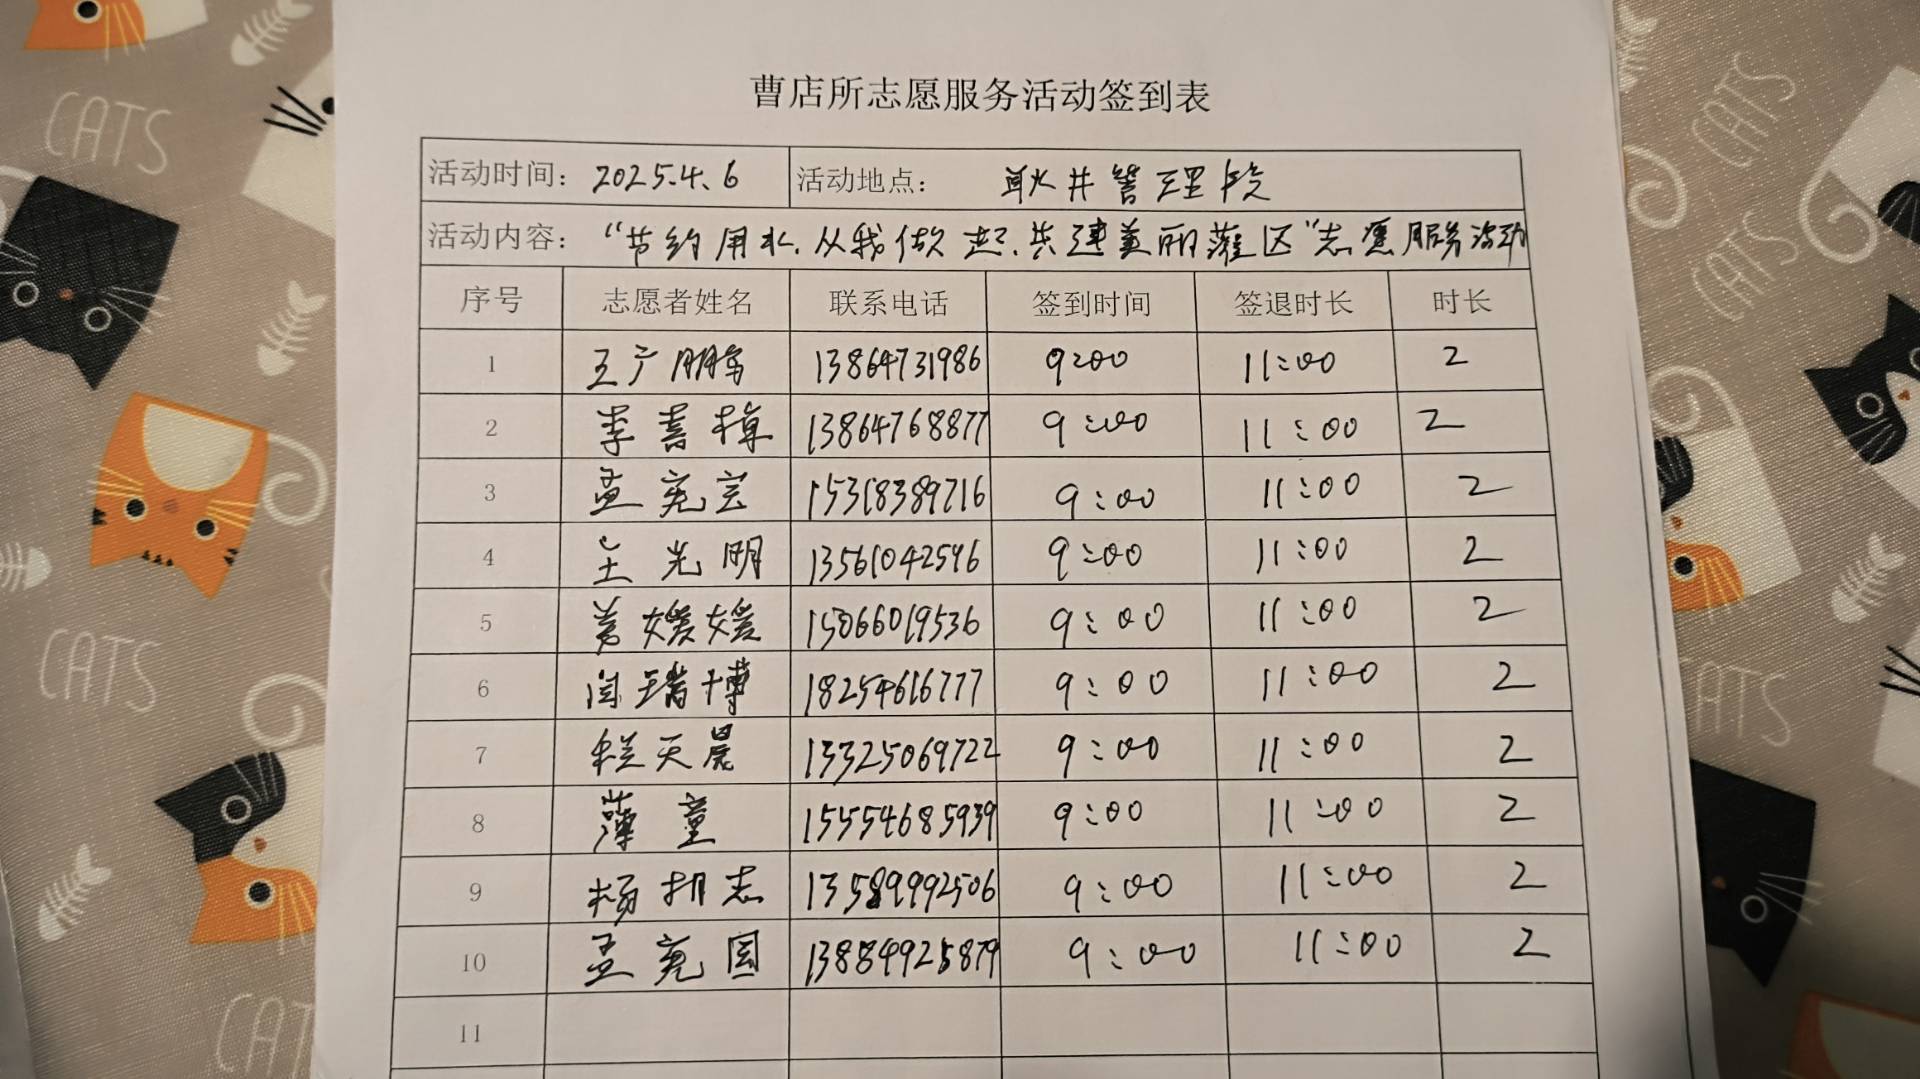 曹店所志愿服务活动签到表
活动时间： 2025.4.6 活动地点： 耿井管理段
活动内容： “节约用水.从我做起.共建美丽灌区”志愿服务活动
序号 志愿者姓名 联系电话 签到时间 签退时长 时长
1 王广鹏 13864731986 9:00 11:00 2
2 李喜樟 13864768877 9:00 11:00 2
3 孟宪宝 15318389716 9:00 11:00 2
4 王光明 13561042596 9:00 11:00 2
5 媛媛 15066019536 9:00 11:00 2
6 闫瑞博 18254616777 9:00 11:00 2
7 程天晨 13325069722 9:00 11:00 2
8 薄童 15554685939 9:00 11:00 2
9 杨志 13589992506 9:00 11:00 2
10 孟宪国 13884925879 9:00 11:00 2
11
CATS
CATS
CATS
CATS
CATS
CAT